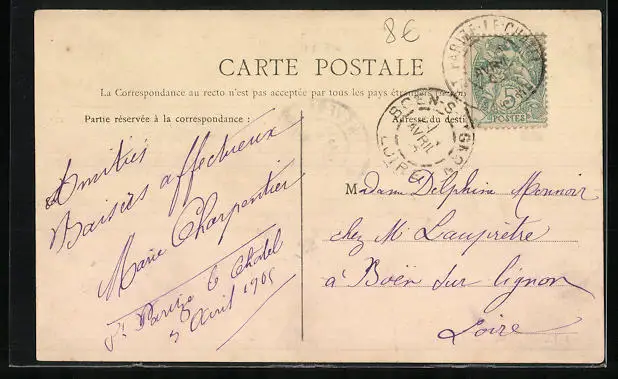 8€
CARTE POSTALE
La Correspondance au recto n'est pas acceptée par tous les pays étrangers
Partie réservée à la correspondance :
Adresse du desti
PARIZE-LE-CHATEL
5
POSTES
BOEN-S-LIGNON
AVRIL
LOIRE
Amitiés
Baisers affectueux
Marie Charpentier
St Parize le Chatel
3 Avril 1905
Madame Delphine Monnoir
chez M Lauprêtre
à Boën sur Lignon
Loire